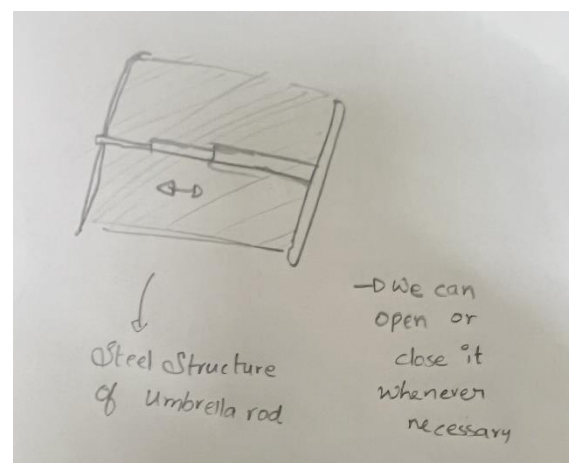 Steel Structure
of Umbrella rod
→ We can
open or
close it
whenever
necessary